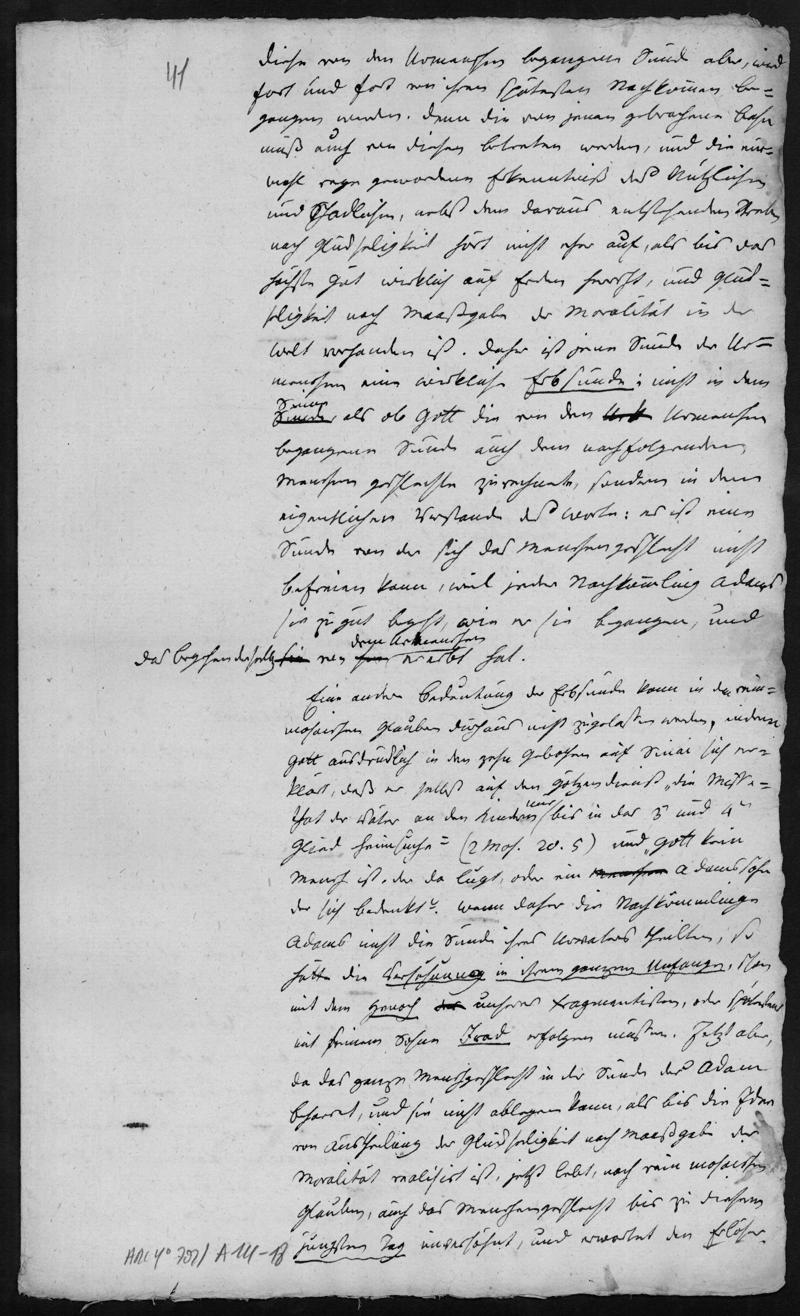 41
diese von den Urmenschen begangene Sünde aber, wird
fort und fort von ihren spätesten Nachkommen be-
gangen werden. Denn die von jenen gebrochene Bahn
muß auch von diesen betreten werden, und die ein-
mahl rege gewordene Erkenntniß des Nützlichen
und Schädlichen, nebst dem daraus entstehenden Streben
nach Glückseligkeit hört nicht eher auf, als bis das
höchste Gut wirklich auf Erden herrscht, und Glück-
seligkeit nach Maaßgabe der Moralität in der
Welt vorhanden ist. Daher ist jene Sünde der Ur-
menschen eine wirkliche Erbsünde: nicht in dem
Sinne als ob Gott die von den Urmenschen
begangene Sünde auch dem nachfolgenden
Menschengeschlechte zurechnete, sondern in dem
eigentlichen Verstande des Worts: es ist eine
Sünde von der sich das Menschengeschlecht nicht
befreien kann, weil jeder Nachkömmling Adams
sie so gut begeht, wie er sie begangen, und
das Begehen derselben von dem Urmenschen ererbt hat.
Eine andere Bedeutung der Erbsünde kann in dem rein-
mosaischen Glauben durchaus nicht zugelassen werden, indem
Gott ausdrücklich in den zehn Geboten auf Sinai sich er-
klärt, daß er selbst auf den Götzendienst „die Misse-
that der Väter an den Kindern nur bis in das 3 und 4
Glied heimsuche" (2 Mos. 20. 5) und „Gott kein
Mensch ist, der da lügt, oder ein Adamssohn
der sich bedenkt". Wenn daher die Nachkömmlinge
Adams nicht die Sünde ihres Urvaters theilten, so
hätte die Versöhnung in ihrem ganzen Umfange, schon
mit dem Henoch unseres Fragmentisten, oder spätestens
mit seinem Sohne Irad erfolgen müssen. Jetzt aber,
da das ganze Menschengeschlecht in der Sünde des Adam
beharret, und sie nicht ablegen kann, als bis die Idee
von Austheilung der Glückseligkeit nach Maaßgabe der
Moralität realisirt ist, jetzt lebt, nach rein mosaischem
Glauben, auch das Menschengeschlecht bis zu diesem
jüngsten Tag unversöhnt, und erwartet den Erlöser.
ARC 4° 792/ A 14-18